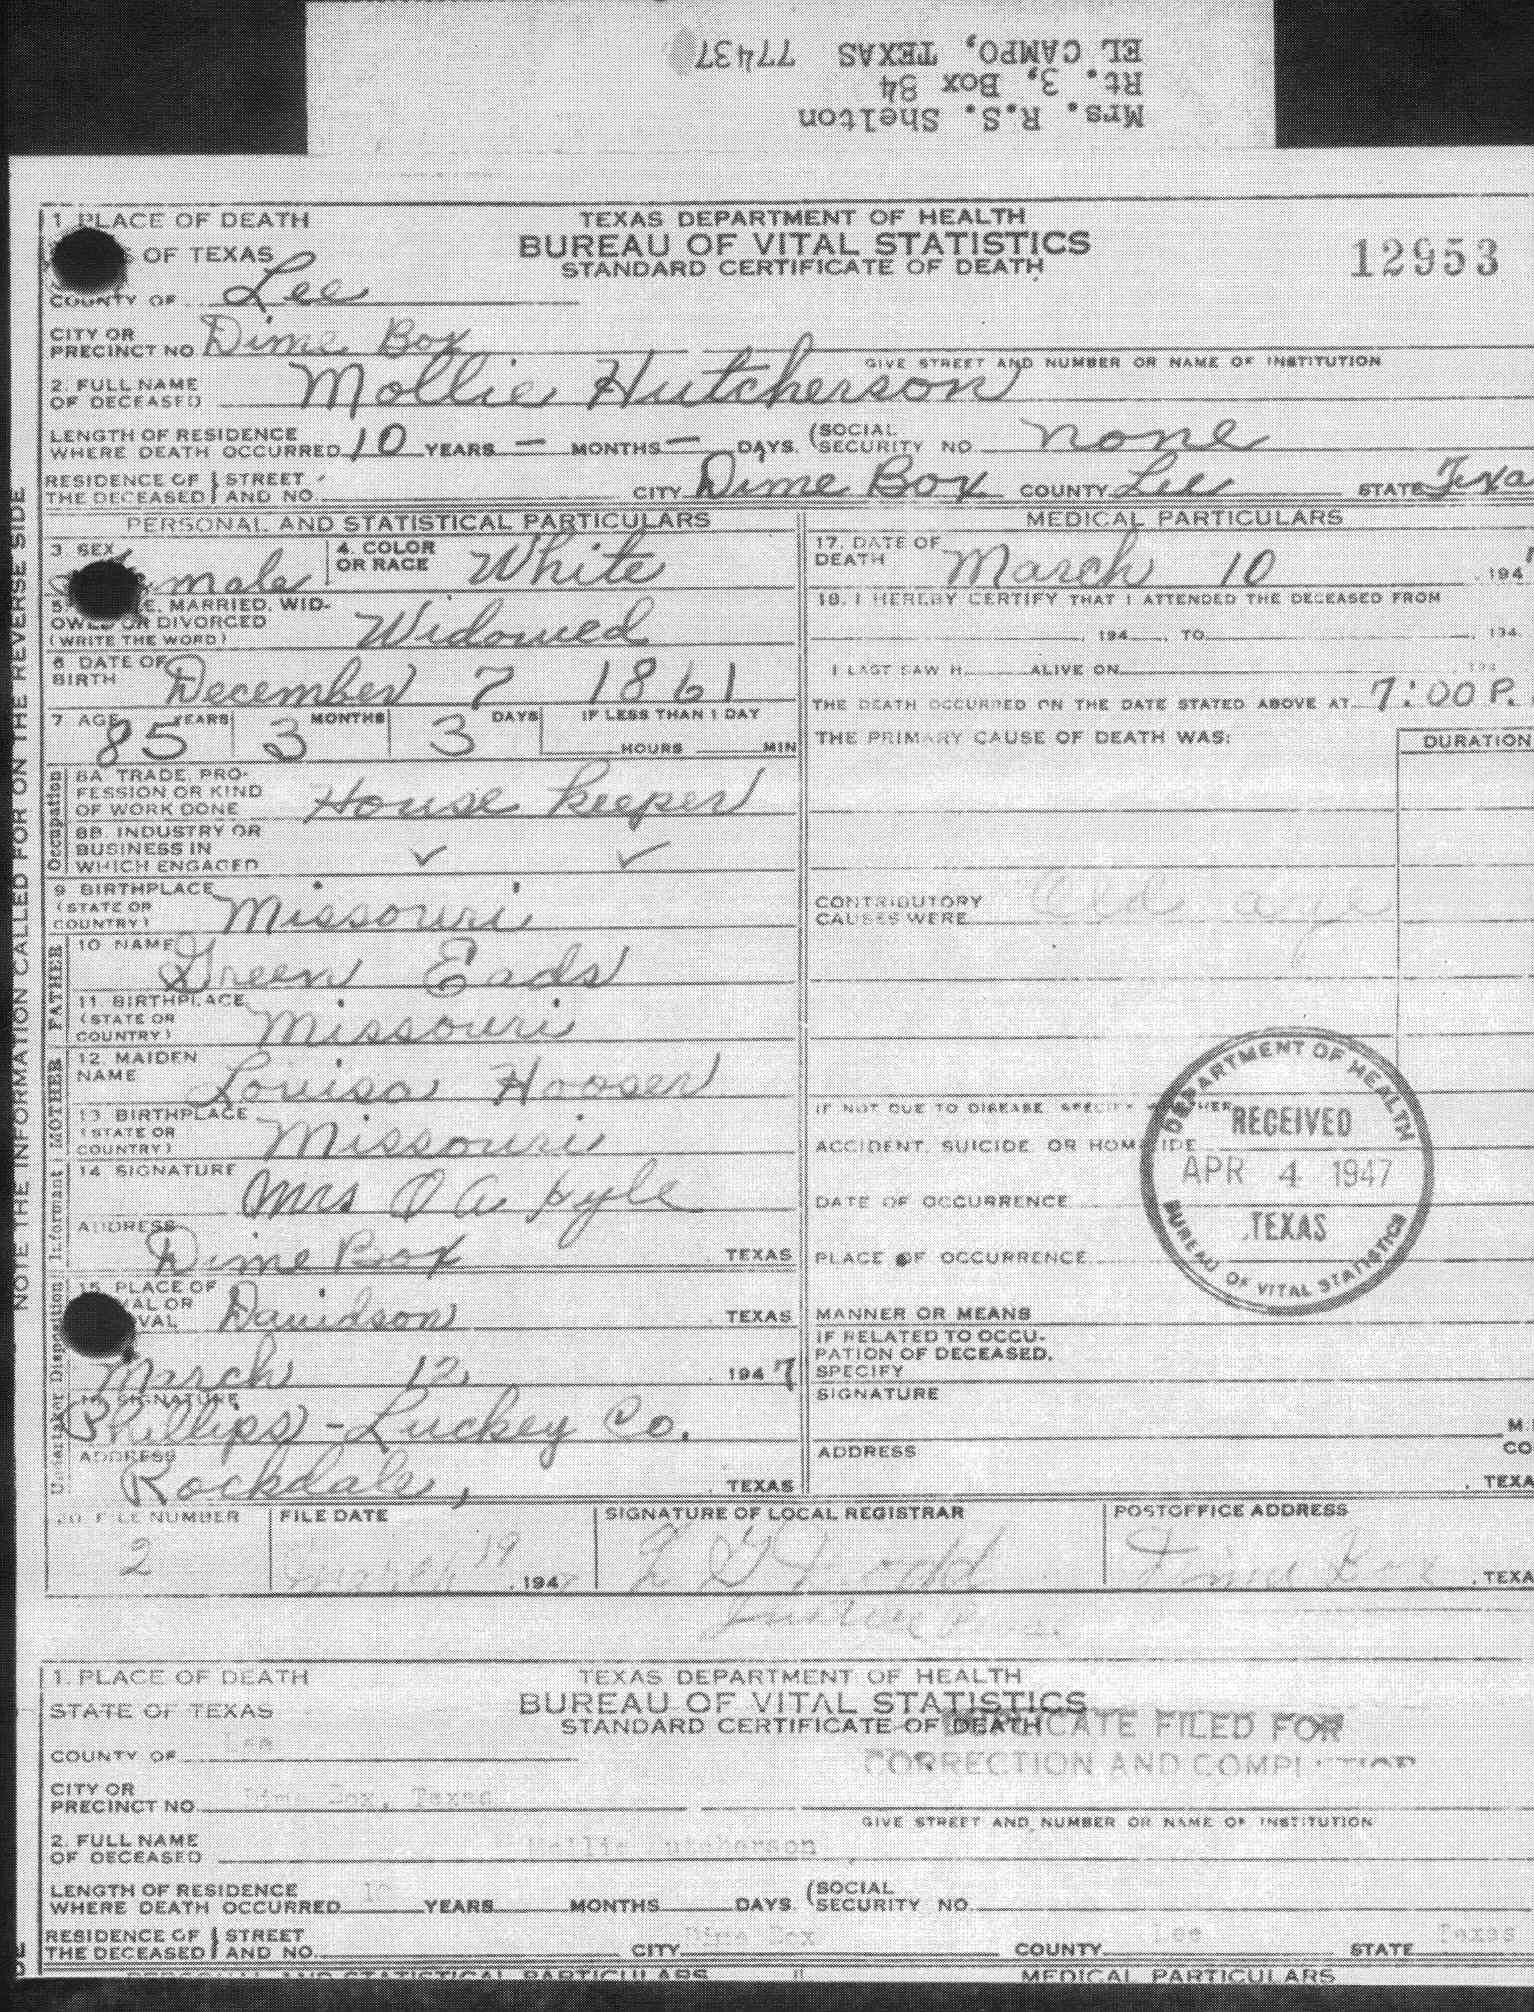 Mrs. R.S. Shelton
Rt. 3, Box 84
EL CAMPO, TEXAS 77437
1. PLACE OF DEATH
TEXAS DEPARTMENT OF HEALTH
BUREAU OF VITAL STATISTICS
STANDARD CERTIFICATE OF DEATH
12953
OF TEXAS
COUNTY OF Lee
CITY OR
PRECINCT NO Dime Box
GIVE STREET AND NUMBER OR NAME OF INSTITUTION
2. FULL NAME
OF DECEASED Mollie Hutcherson
LENGTH OF RESIDENCE
WHERE DEATH OCCURRED 10 YEARS — MONTHS — DAYS.
(SOCIAL
SECURITY NO none
RESIDENCE OF STREET
THE DECEASED AND NO. CITY Dime Box COUNTY Lee STATE Texa
NOTE THE INFORMATION CALLED FOR ON THE REVERSE SIDE
PERSONAL AND STATISTICAL PARTICULARS
3 SEX male
4. COLOR
OR RACE White
5 E, MARRIED, WID-
OWED OR DIVORCED
(WRITE THE WORD) Widowed
6 DATE OF
BIRTH December 7 1861
7 AGE 85 YEARS 3 MONTHS 3 DAYS
IF LESS THAN 1 DAY
HOURS MIN
Occupation
8A TRADE, PRO-
FESSION OR KIND
OF WORK DONE House Keeper
8B. INDUSTRY OR
BUSINESS IN
WHICH ENGAGED ✓ ✓
9 BIRTHPLACE
(STATE OR
COUNTRY) Missouri
FATHER
10 NAME Green Eads
11. BIRTHPLACE
(STATE OR
COUNTRY) Missouri
MOTHER
12. MAIDEN
NAME Louisa Hooser
13 BIRTHPLACE
(STATE OR
COUNTRY) Missouri
Informant
14 SIGNATURE Mrs O A Kyle
ADDRESS Dime Box TEXAS
Undertaker Disposition
15 PLACE OF
AL OR
VAL Davidson TEXAS
March 12 1947
SIGNATURE
Phillips-Luckey Co.
ADDRESS
Rockdale, TEXAS
MEDICAL PARTICULARS
17. DATE OF
DEATH March 10 1947
18. I HEREBY CERTIFY THAT I ATTENDED THE DECEASED FROM
194 , TO , 194
I LAST SAW H ALIVE ON 194
THE DEATH OCCURRED ON THE DATE STATED ABOVE AT 7:00 P.
THE PRIMARY CAUSE OF DEATH WAS: DURATION
CONTRIBUTORY
CAUSES WERE Old age
IF NOT DUE TO DISEASE, SPECIFY
ACCIDENT, SUICIDE, OR HOMICIDE
DATE OF OCCURRENCE
PLACE OF OCCURRENCE
DEPARTMENT OF HEALTH
RECEIVED
APR 4 1947
TEXAS
BUREAU OF VITAL STATISTICS
MANNER OR MEANS
IF RELATED TO OCCU-
PATION OF DECEASED,
SPECIFY
SIGNATURE
ADDRESS
TEXA
20 FILE NUMBER 2
FILE DATE March 19, 194
SIGNATURE OF LOCAL REGISTRAR
POSTOFFICE ADDRESS
Dime Box , TEXA
1. PLACE OF DEATH
TEXAS DEPARTMENT OF HEALTH
BUREAU OF VITAL STATISTICS
STANDARD CERTIFICATE OF DEATH
STATE OF TEXAS
CATE FILED FOR
CORRECTION AND
COUNTY OF Lee
CITY OR
PRECINCT NO Dime Box, Texas
GIVE STREET AND NUMBER OR NAME OF INSTITUTION
2. FULL NAME
OF DECEASED Mollie Hutcherson
LENGTH OF RESIDENCE
WHERE DEATH OCCURRED 10 YEARS MONTHS DAYS.
(SOCIAL
SECURITY NO.
RESIDENCE OF STREET
THE DECEASED AND NO. CITY Dime Box COUNTY Lee STATE Texas
PERSONAL AND STATISTICAL PARTICULARS
MEDICAL PARTICULARS